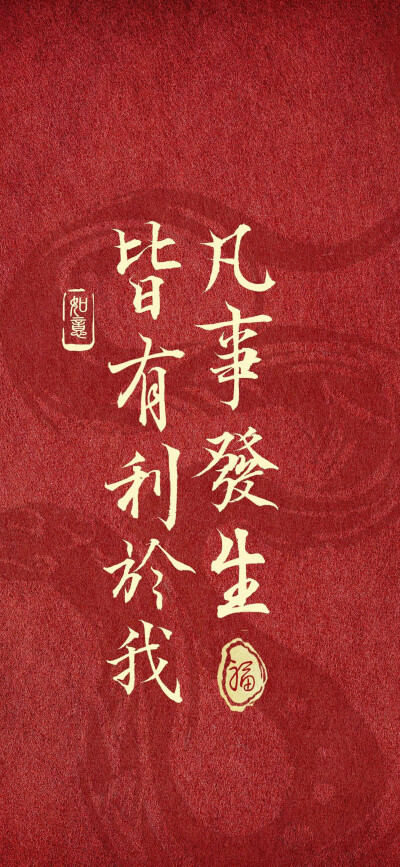 凡事發生
福
皆有利於我
如意